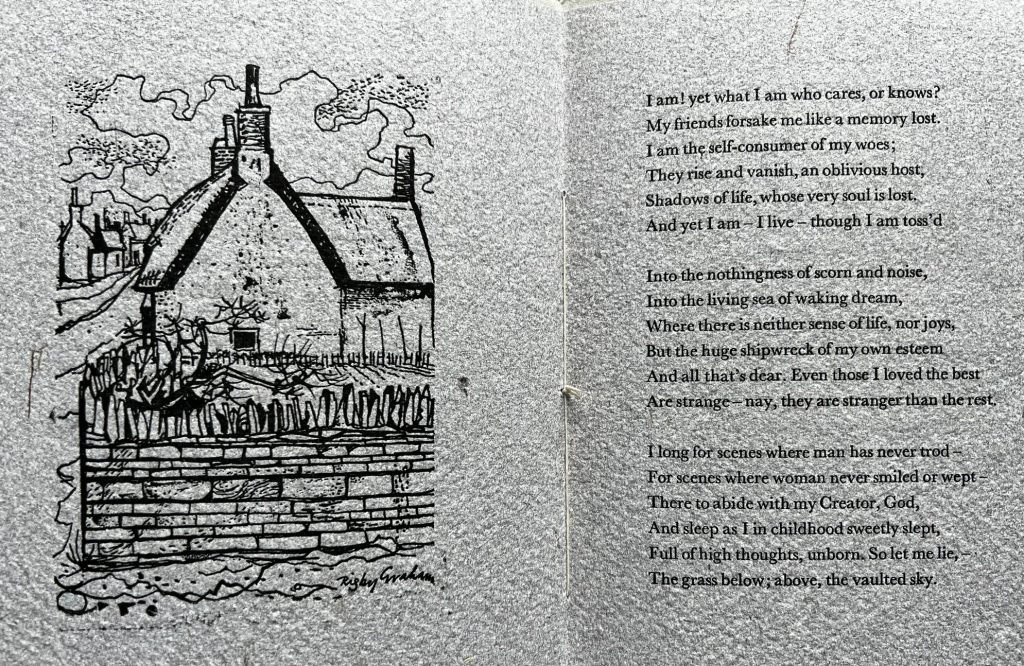 Rigby Graham
I am! yet what I am who cares, or knows?
My friends forsake me like a memory lost.
I am the self-consumer of my woes;
They rise and vanish, an oblivious host,
Shadows of life, whose very soul is lost.
And yet I am – I live – though I am toss'd
Into the nothingness of scorn and noise,
Into the living sea of waking dream,
Where there is neither sense of life, nor joys,
But the huge shipwreck of my own esteem
And all that's dear. Even those I loved the best
Are strange – nay, they are stranger than the rest.
I long for scenes where man has never trod –
For scenes where woman never smiled or wept –
There to abide with my Creator, God,
And sleep as I in childhood sweetly slept,
Full of high thoughts, unborn. So let me lie, –
The grass below; above, the vaulted sky.